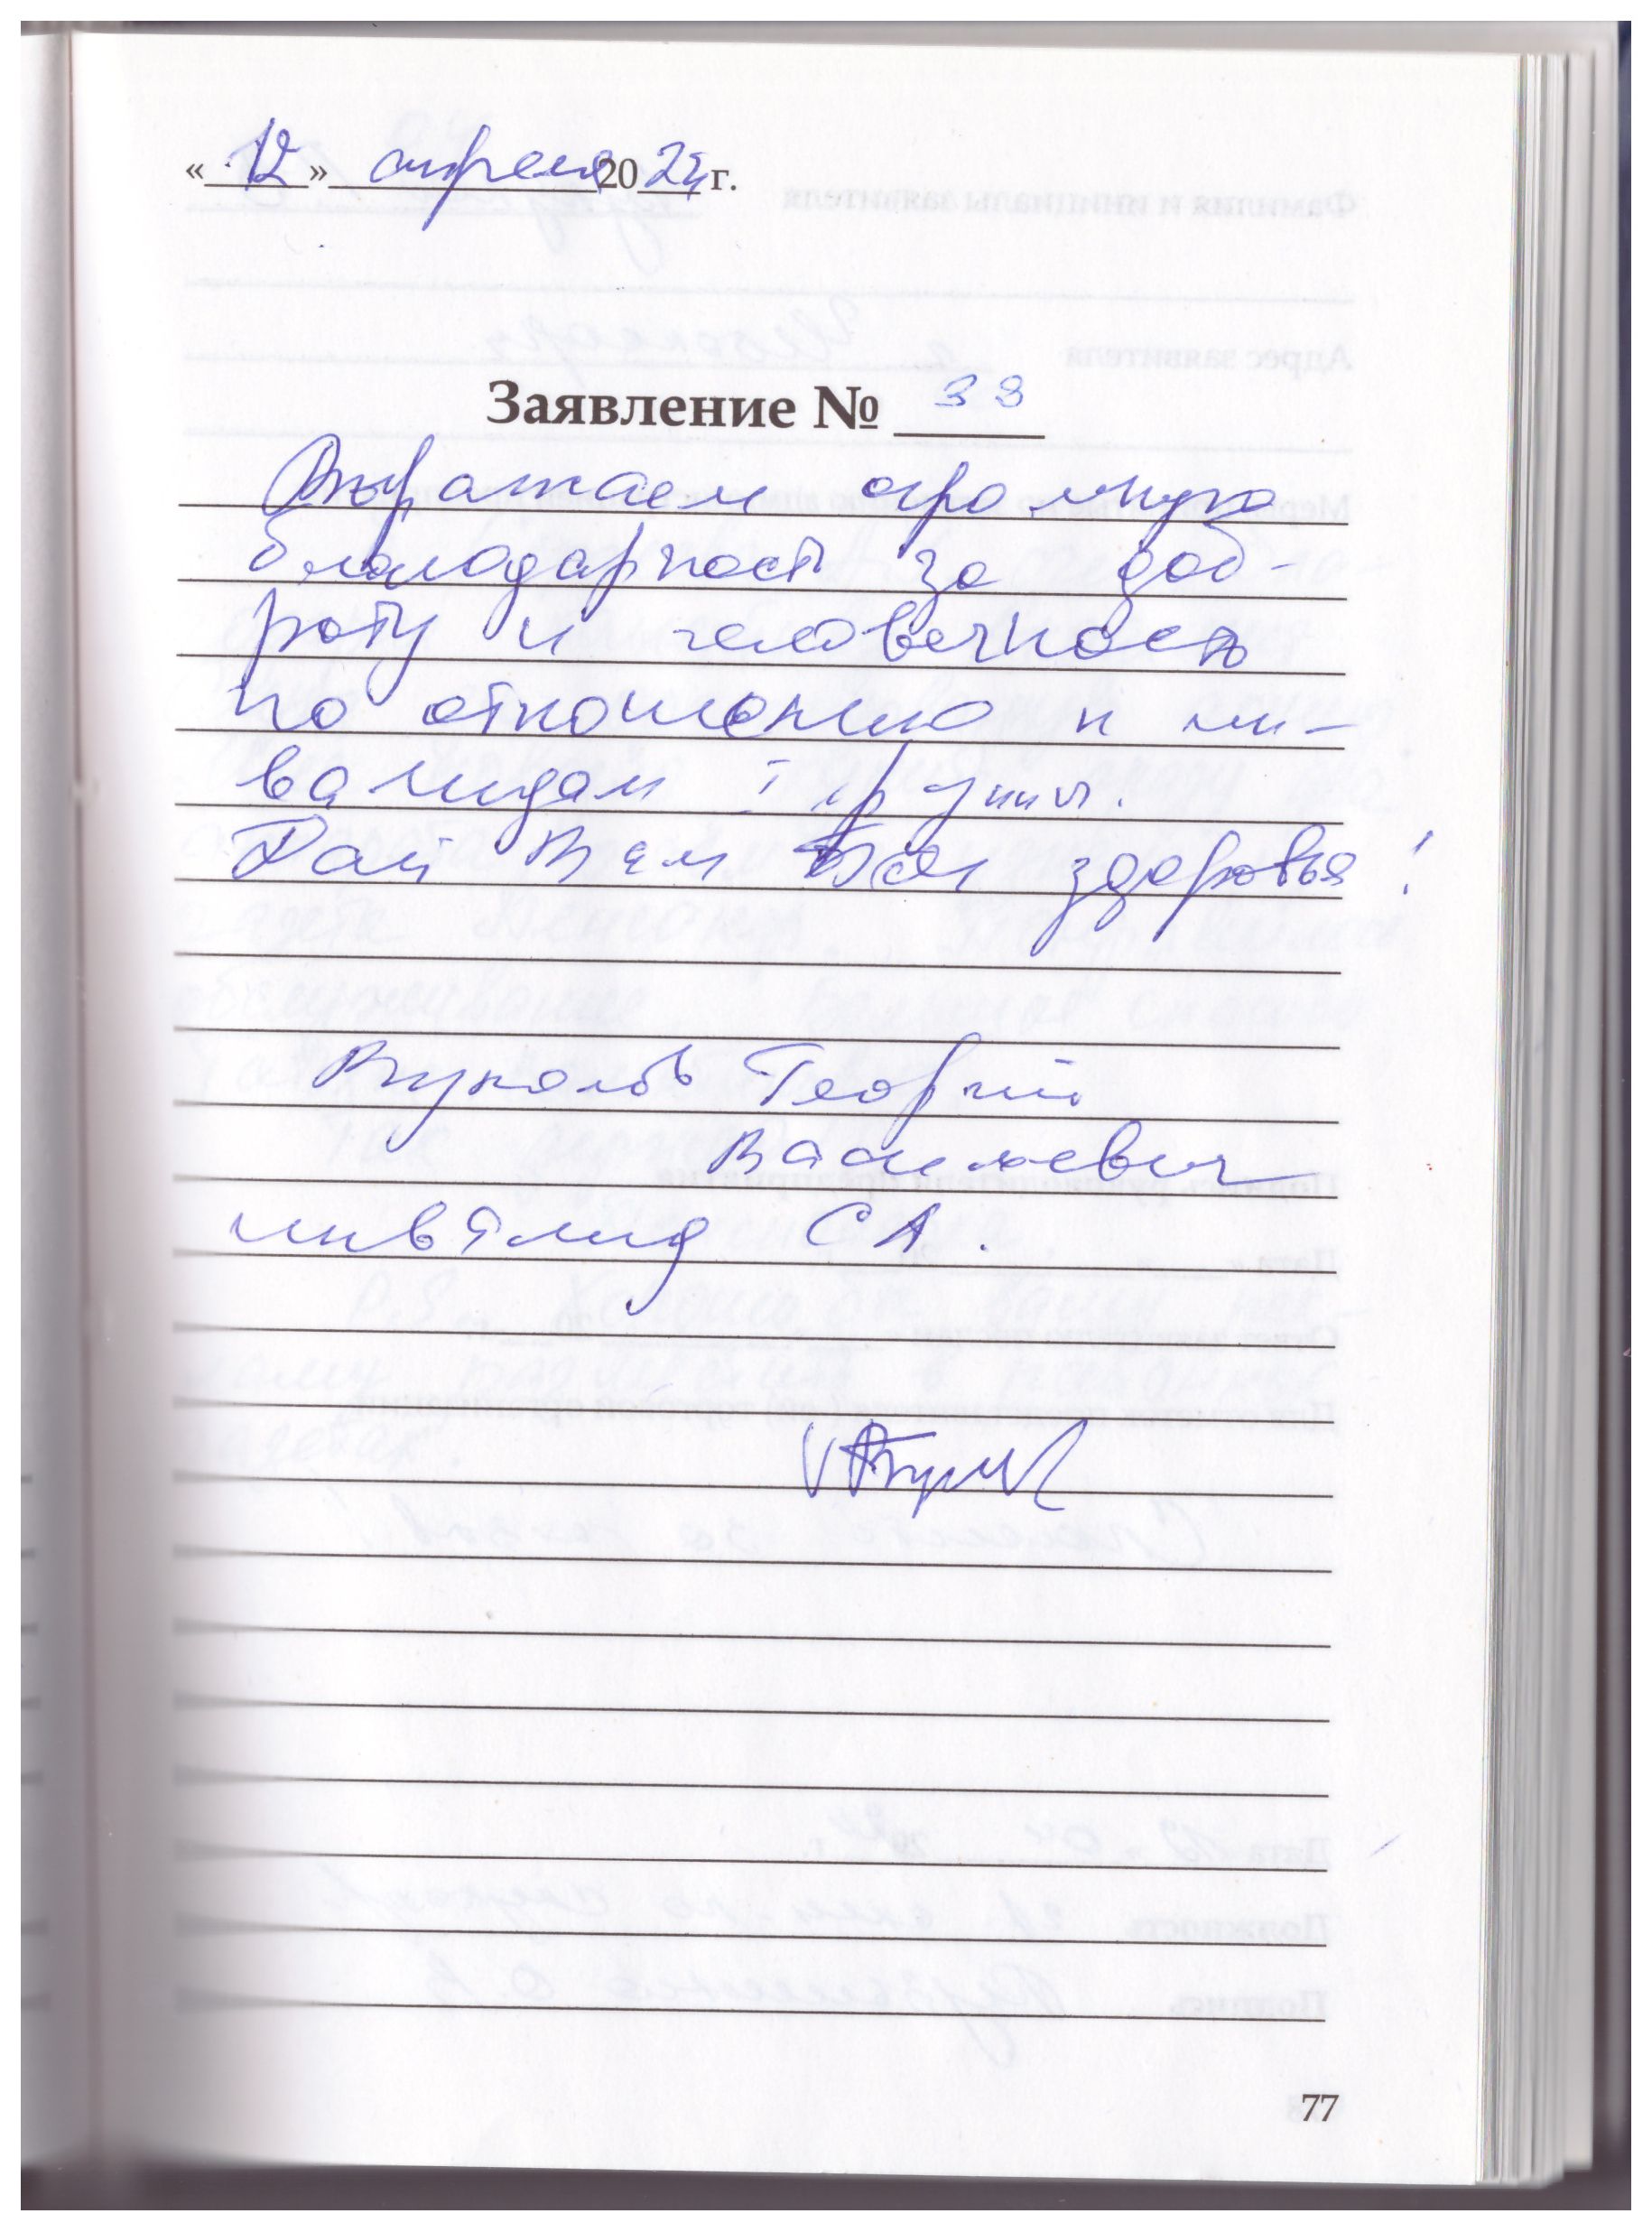 «12» апреля 2024 г.
Заявление № 33
Выражаем огромную
благодарность за доб-
роту и человечность
по отношению к ин-
валидам I группы.
Дай Вам Бог здоровья!
Вуколов Георгий
Васильевич
инвалид СА.
77